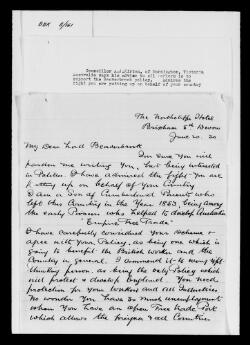 Councillor of Mornington, Victoria
Australia says his advice to all workers is to
support the Beaverbrook policy. Admires the
fight you are putting up on behalf of your country
The Northcliffe Hotel
Brixham Sth Devon
June 20. 30
My Dear Lord Beaverbrook
I am sure you will
pardon me writing you, but being interested
in Politics. I have admired the fight you are
putting up on behalf of your Country
I am a Son of Cumberland Parents who
left this Country in the Year 1863, being among
the early Pioneers who helped to develop Australia
"Empire Free Trade"
I have carefully considered your Scheme &
agree with your Policy, as being one which is
going to benefit the British worker and the
Country in general. I commend it to every right
thinking person, as being the only Policy which
will protect & develop England. You need
protection for your workers and all Industries
No wonder you have so much unemployment
when you have an Open Free Trade Port
which allows the foreigner & all Countries